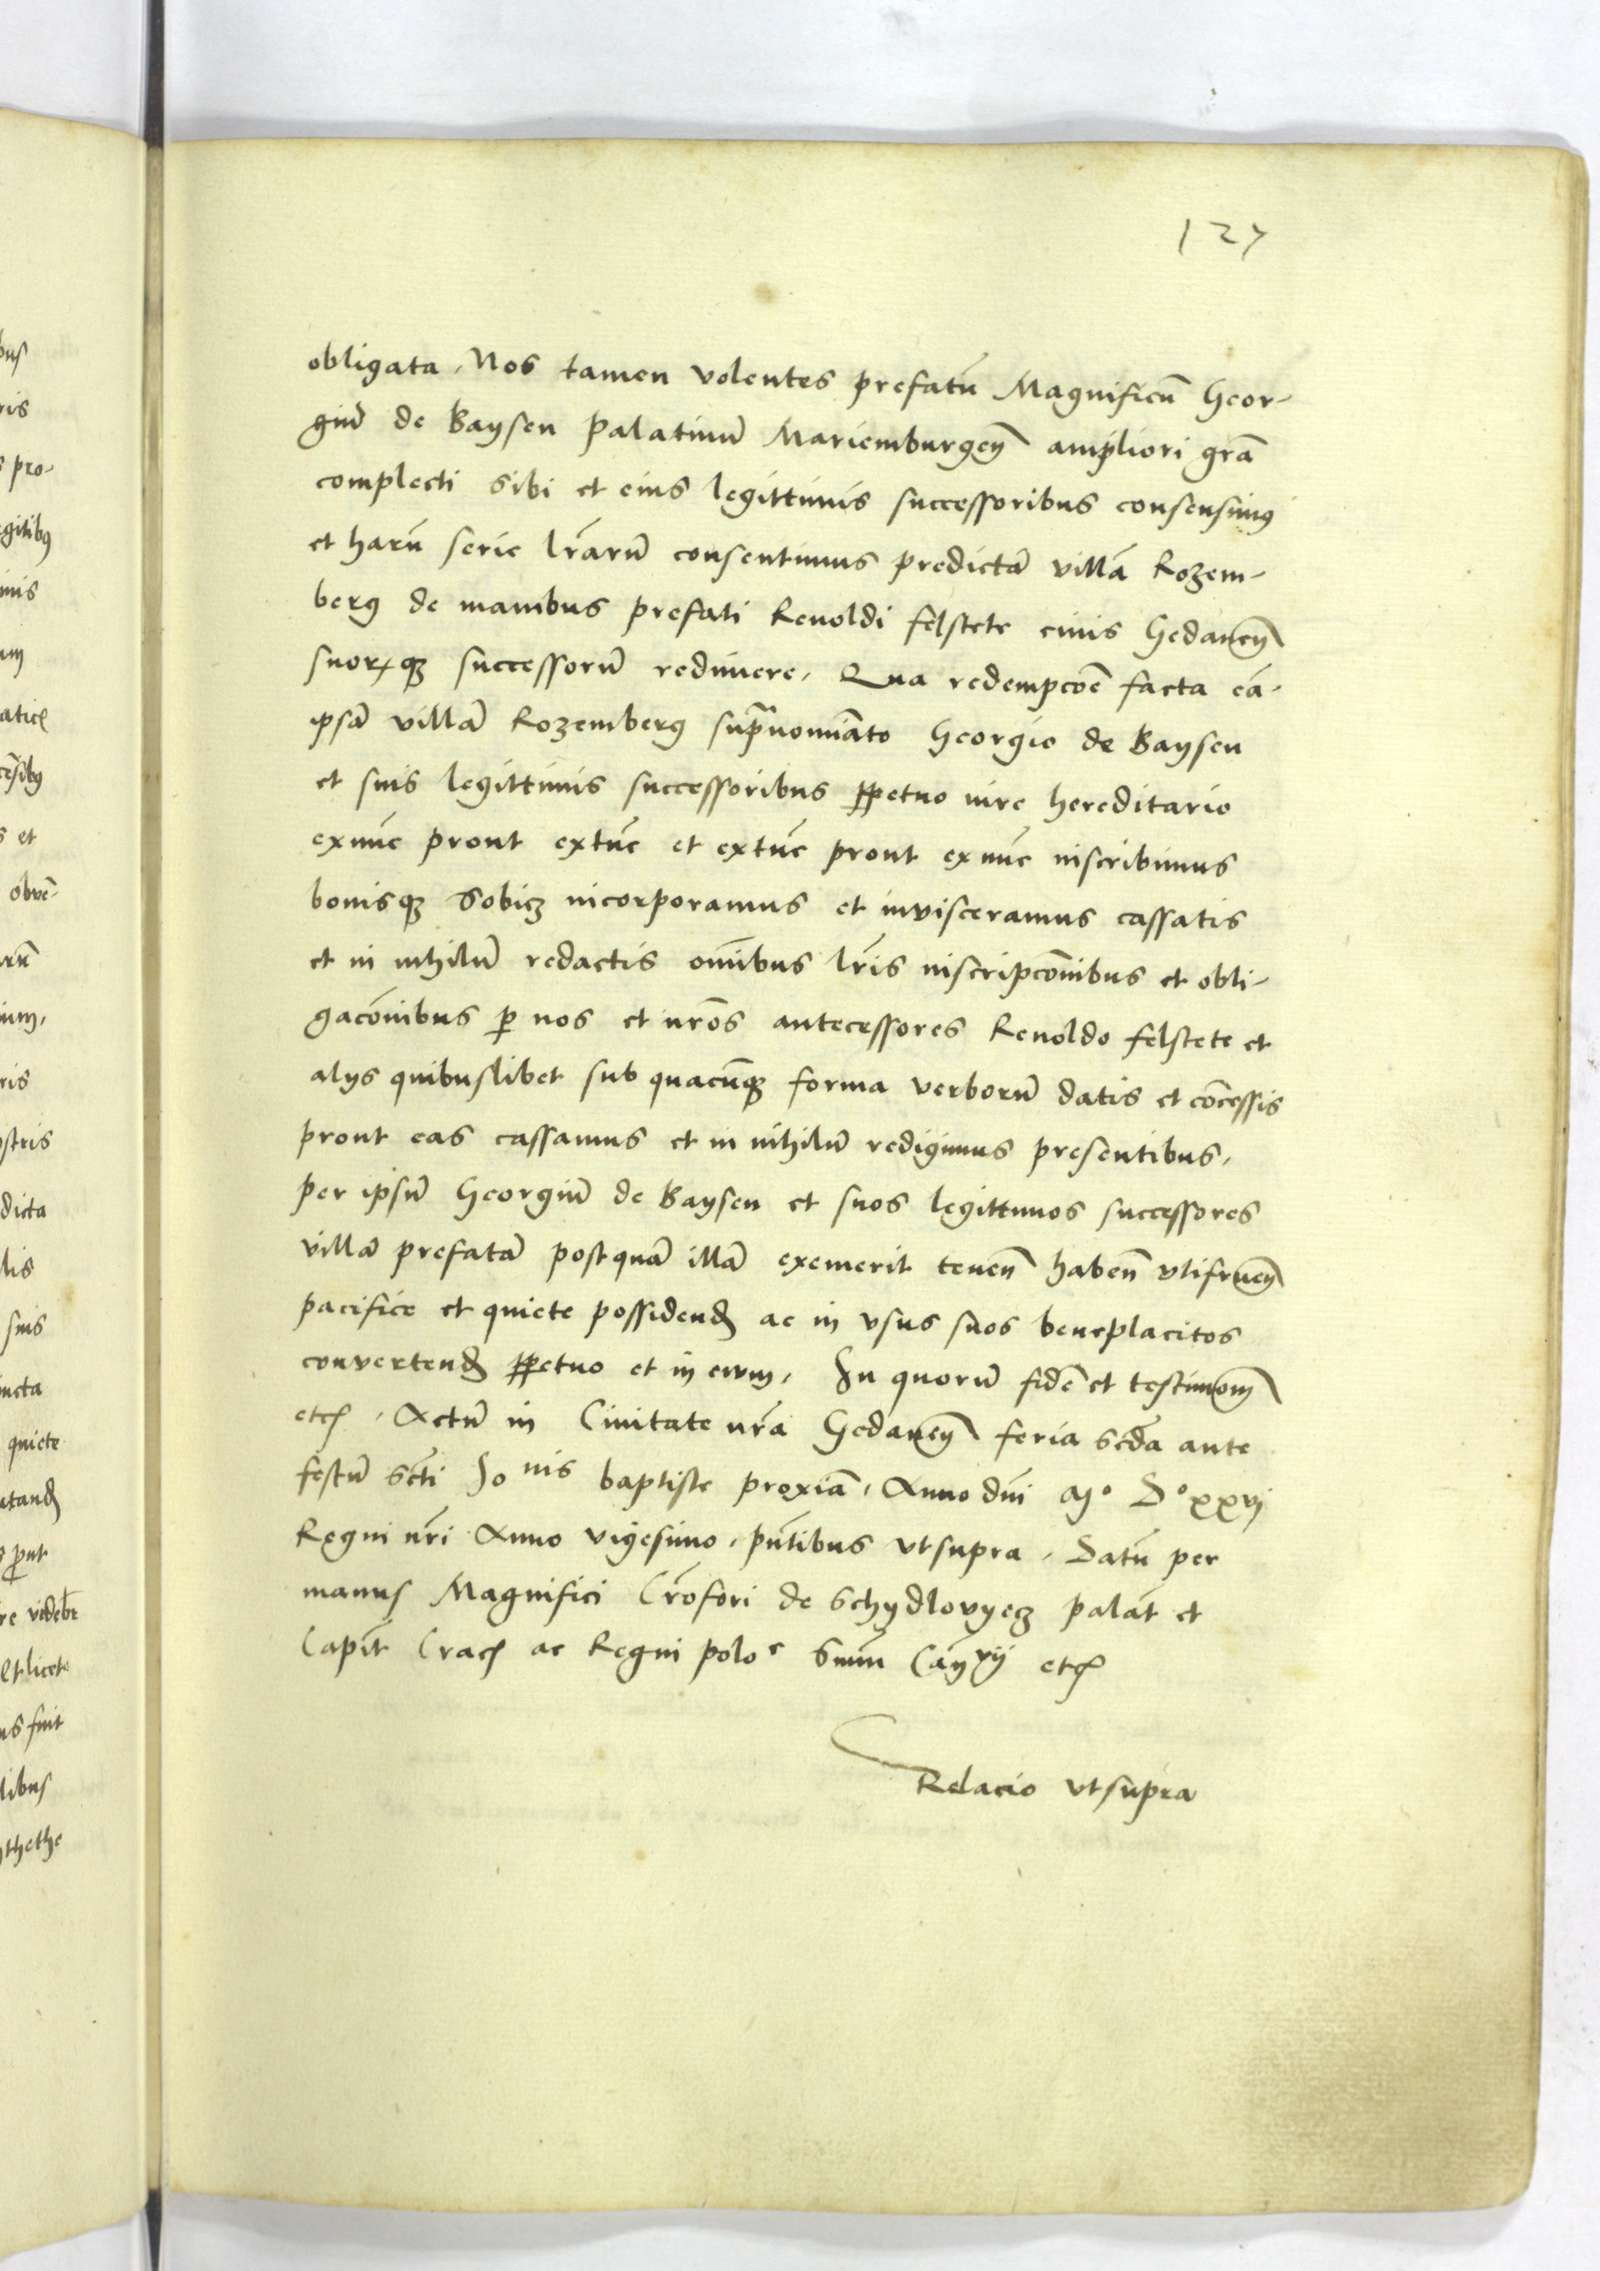 127
obligata. Nos tamen volentes prefatū Magnificū Geor-
giū de Baysen Palatinū Mariemburgeñ ampliori grã
complecti sibi et eius legittimis successoribus consensimus
et harū serie lr̃arū consentimus predictã villã Rozem-
berg de manibus prefati Renoldi felstete civis Gedaneñ
suorꝝqꝫ successorū redimere. Qua redempcōe facta eã-
ipsã villã Rozemberg supranomīato Georgio de Baysen
et suis legittimis successoribus ꝑpetuo iure hereditario
exnūc prout extūc et extūc prout exnūc inscribimus
bonisqꝫ Sobicz incorporamus et invisceramus cassatis
et in nihilū redactis om̄ibus lr̃is inscripcōnibus et obli-
gacōnibus ꝑ nos et nr̃os antecessores Renoldo felstete et
alijs quibuslibet sub quacūqꝫ forma verborū datis et cōcessis
prout eas cassamus et in nihilū redigimus presentibus.
per ipsū Georgiū de Baysen et suos legittimos successores
villã prefatã postquã illã exemerit teneñ habeñ vtifrueñ
pacifice et quiete possidenđ ac in vsus suos beneplacitos
convertenđ ꝑpetuo et in evum. In quorū fidē et testimoniū
etcꝭ. Actū in Civitate nr̃a Gedaneñ feria scđa ante
festū Scti Jonis baptiste proxīã. Anno dni Mo Do xxvj
Regni nr̃i Anno vigesimo. pñtibus vtsupra. Datū per
manus Magnifici Cr̃ofori de Schydlovyecz palat̃ et
Capit̃ Cracꝭ ac Regni polo e Summi Cancrij etcꝭ
Relacio vtsupra
bus
ris
pro-
egitibus
imis
um
s et
obve-
ris
ostris
dicta
lis
suis
uncta
quiete
utanđ
prout
re videbr̃
Et licet
us fuit
libus
thethe